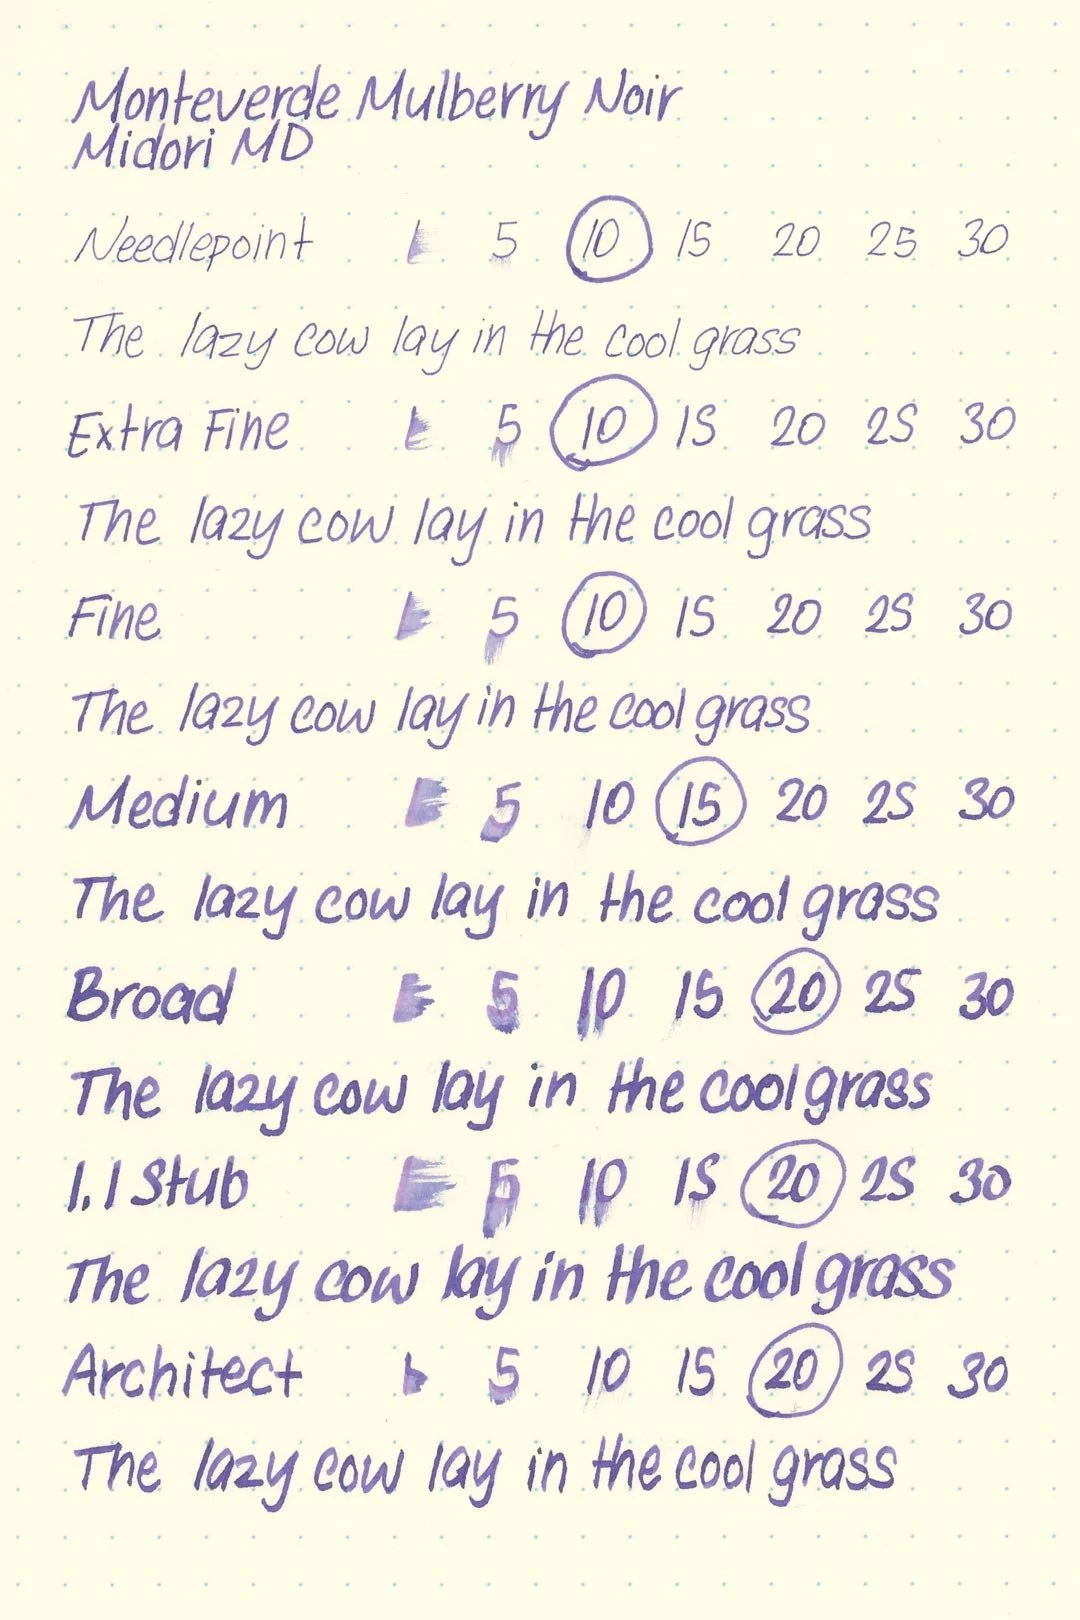 Monteverde Mulberry Noir
Midori MD
Needlepoint 1 5 10 15 20 25 30
The lazy cow lay in the cool grass
Extra Fine 1 5 10 15 20 25 30
The lazy cow lay in the cool grass
Fine 1 5 10 15 20 25 30
The lazy cow lay in the cool grass
Medium 1 5 10 15 20 25 30
The lazy cow lay in the cool grass
Broad 1 5 10 15 20 25 30
The lazy cow lay in the cool grass
1.1 Stub 1 5 10 15 20 25 30
The lazy cow lay in the cool grass
Architect 1 5 10 15 20 25 30
The lazy cow lay in the cool grass